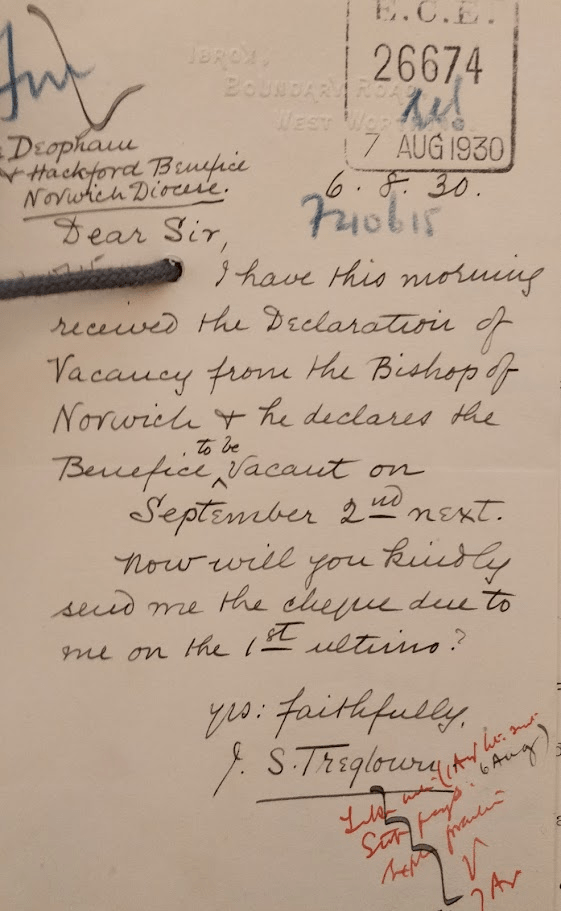 E.C.E.
26674
7 AUG 1930
IBROX,
BOUNDARY ROAD
WEST WOR
Deopham
& Hackford Benefice
Norwich Diocese.
6. 8. 30.
Dear Sir,
I have this morning
received the Declaration of
Vacancy from the Bishop of
Norwich & he declares the
Benefice to be Vacant on
September 2nd next.
Now will you kindly
send me the cheque due to
me on the 1st ultimo?
yrs: faithfully,
J. S. Treglown
6 Aug)
7 Au